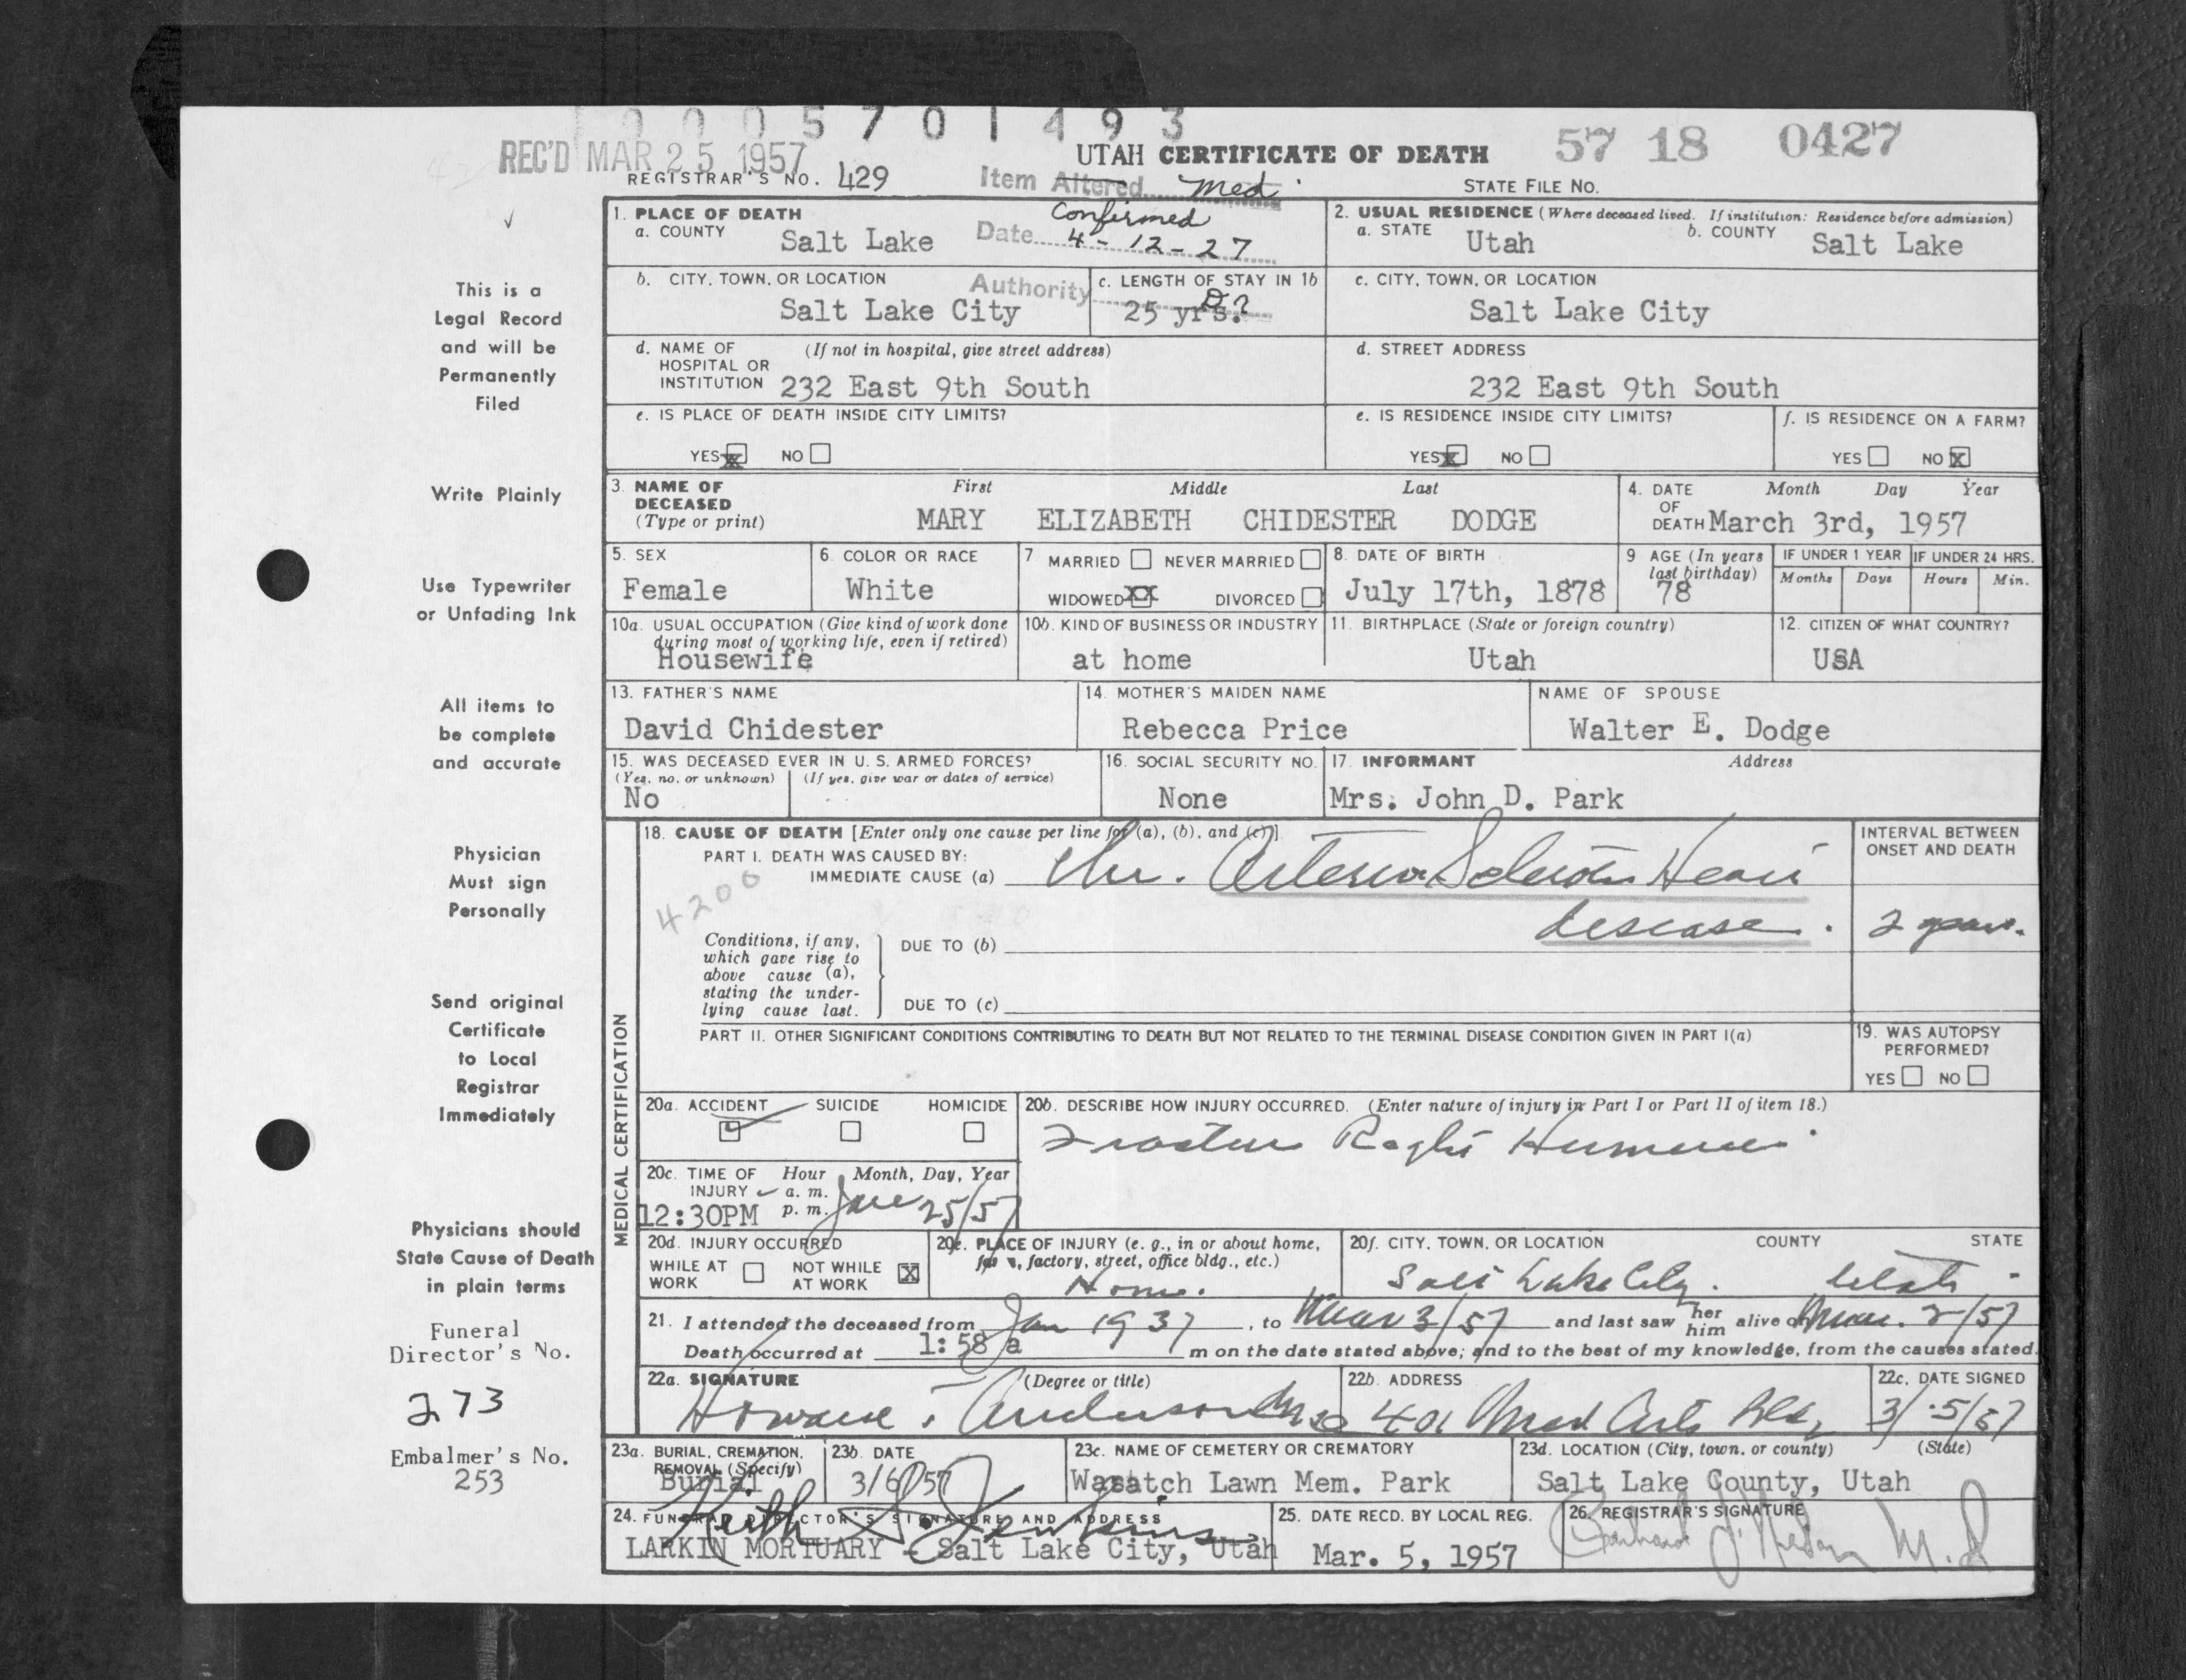 0 0 0 5 7 0 1 4 9 3
REC'D MAR 25 1957
UTAH CERTIFICATE OF DEATH
57 18 0427
REGISTRAR'S NO. 429
Item Altered Med
STATE FILE NO.
Confirmed
Date 4-12-27
Authority
1. PLACE OF DEATH
a. COUNTY Salt Lake
2. USUAL RESIDENCE (Where deceased lived. If institution: Residence before admission)
a. STATE Utah b. COUNTY Salt Lake
b. CITY, TOWN, OR LOCATION Salt Lake City
c. LENGTH OF STAY IN 1b 25 yrs.
c. CITY, TOWN, OR LOCATION Salt Lake City
d. NAME OF HOSPITAL OR INSTITUTION (If not in hospital, give street address)
232 East 9th South
d. STREET ADDRESS
232 East 9th South
e. IS PLACE OF DEATH INSIDE CITY LIMITS?
YES X NO
e. IS RESIDENCE INSIDE CITY LIMITS?
YES X NO
f. IS RESIDENCE ON A FARM?
YES NO X
3. NAME OF DECEASED (Type or print) First Middle Last
MARY ELIZABETH CHIDESTER DODGE
4. DATE OF DEATH Month Day Year
March 3rd, 1957
5. SEX
Female
6. COLOR OR RACE
White
7 MARRIED NEVER MARRIED
WIDOWED XX DIVORCED
8. DATE OF BIRTH
July 17th, 1878
9 AGE (In years last birthday)
78
IF UNDER 1 YEAR
Months Days
IF UNDER 24 HRS.
Hours Min.
10a. USUAL OCCUPATION (Give kind of work done during most of working life, even if retired)
Housewife
10b. KIND OF BUSINESS OR INDUSTRY
at home
11. BIRTHPLACE (State or foreign country)
Utah
12. CITIZEN OF WHAT COUNTRY?
USA
13. FATHER'S NAME
David Chidester
14. MOTHER'S MAIDEN NAME
Rebecca Price
NAME OF SPOUSE
Walter E. Dodge
15. WAS DECEASED EVER IN U. S. ARMED FORCES?
(Yes, no, or unknown) (If yes, give war or dates of service)
No
16. SOCIAL SECURITY NO.
None
17. INFORMANT Address
Mrs. John D. Park
MEDICAL CERTIFICATION
18. CAUSE OF DEATH [Enter only one cause per line for (a), (b), and (c)]
PART I. DEATH WAS CAUSED BY:
IMMEDIATE CAUSE (a) Chr. Arterio Sclerotic Heart
disease.
4200
INTERVAL BETWEEN ONSET AND DEATH
2 years.
Conditions, if any, which gave rise to above cause (a), stating the underlying cause last.
DUE TO (b)
DUE TO (c)
PART II. OTHER SIGNIFICANT CONDITIONS CONTRIBUTING TO DEATH BUT NOT RELATED TO THE TERMINAL DISEASE CONDITION GIVEN IN PART I(a)
19. WAS AUTOPSY PERFORMED?
YES NO
20a. ACCIDENT SUICIDE HOMICIDE
20b. DESCRIBE HOW INJURY OCCURRED. (Enter nature of injury in Part I or Part II of item 18.)
Fracture Right Humerus.
20c. TIME OF INJURY Hour Month, Day, Year
a. m.
p. m.
12:30PM 25/57
20d. INJURY OCCURRED
WHILE AT WORK NOT WHILE AT WORK X
20e. PLACE OF INJURY (e. g., in or about home, farm, factory, street, office bldg., etc.)
Home.
20f. CITY, TOWN, OR LOCATION COUNTY STATE
Salt Lake City. Utah
21. I attended the deceased from Jan 1937, to Mar 3/57 and last saw her him alive on Mar. 2/57
Death occurred at 1:58 a m on the date stated above; and to the best of my knowledge, from the causes stated.
22a. SIGNATURE (Degree or title)
Howard T. Anderson MD
22b. ADDRESS
401 Med Arts Bldg
22c. DATE SIGNED
3/5/57
23a. BURIAL, CREMATION, REMOVAL (Specify)
Burial
23b. DATE
3/6/57
23c. NAME OF CEMETERY OR CREMATORY
Wasatch Lawn Mem. Park
23d. LOCATION (City, town, or county) (State)
Salt Lake County, Utah
24. FUNERAL DIRECTOR'S SIGNATURE AND ADDRESS
Keith S. Jenkins
LARKIN MORTUARY - Salt Lake City, Utah
25. DATE RECD. BY LOCAL REG.
Mar. 5, 1957
26. REGISTRAR'S SIGNATURE
M.D
This is a
Legal Record
and will be
Permanently
Filed
Write Plainly
Use Typewriter
or Unfading Ink
All items to
be complete
and accurate
Physician
Must sign
Personally
Send original
Certificate
to Local
Registrar
Immediately
Physicians should
State Cause of Death
in plain terms
Funeral
Director's No.
273
Embalmer's No.
253